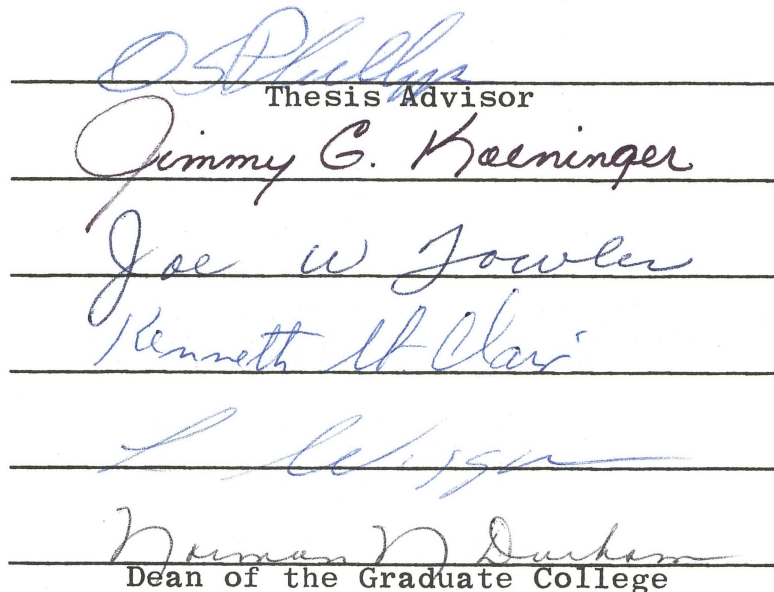 DS Phillips
Thesis Advisor
Jimmy G. Koeninger
Joe W Fowler
Kenneth St. Clair
L Wiggins
Norman N Durham
Dean of the Graduate College